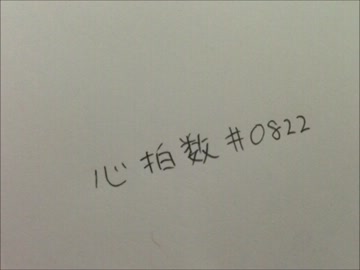 心拍数#0822